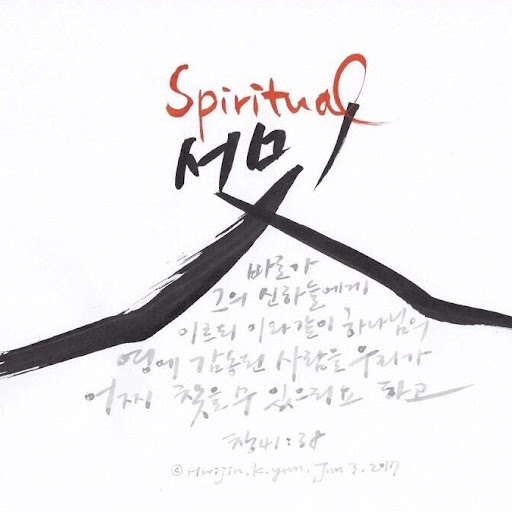 Spiritual
서밋
바로가
그의 신하들에게
이르되 이와 같이 하나님의
영에 감동된 사람을 우리가
어찌 찾을 수 있으리요 하고
창41:38
© Hwijin.K.yun. Jun 3. 2017